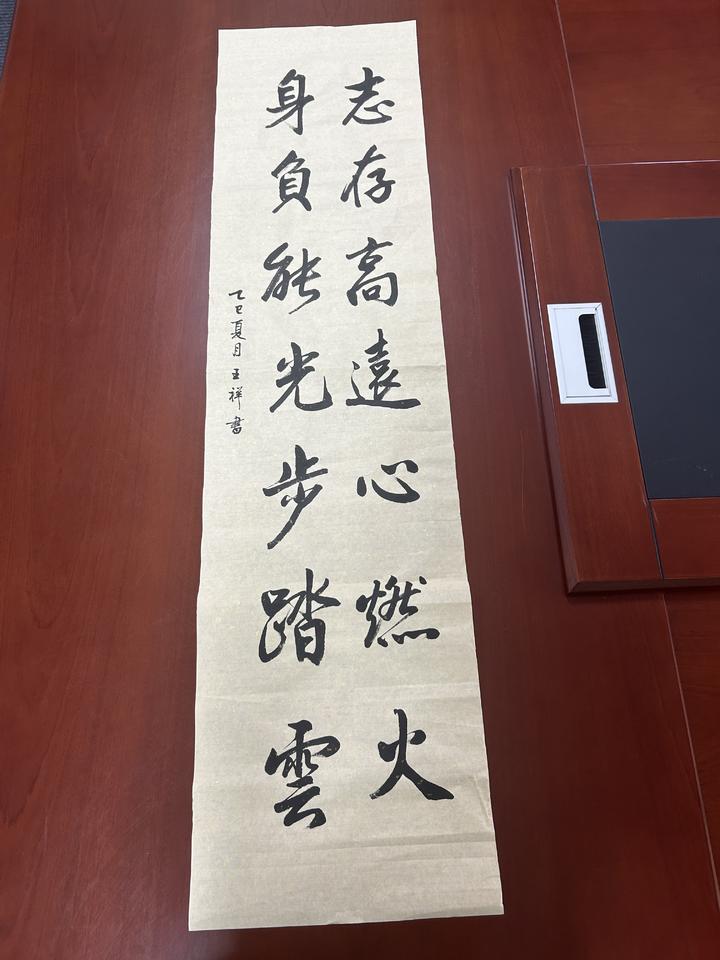 志存高遠心燃火
身負能光步踏雲
乙巳夏月王祥書